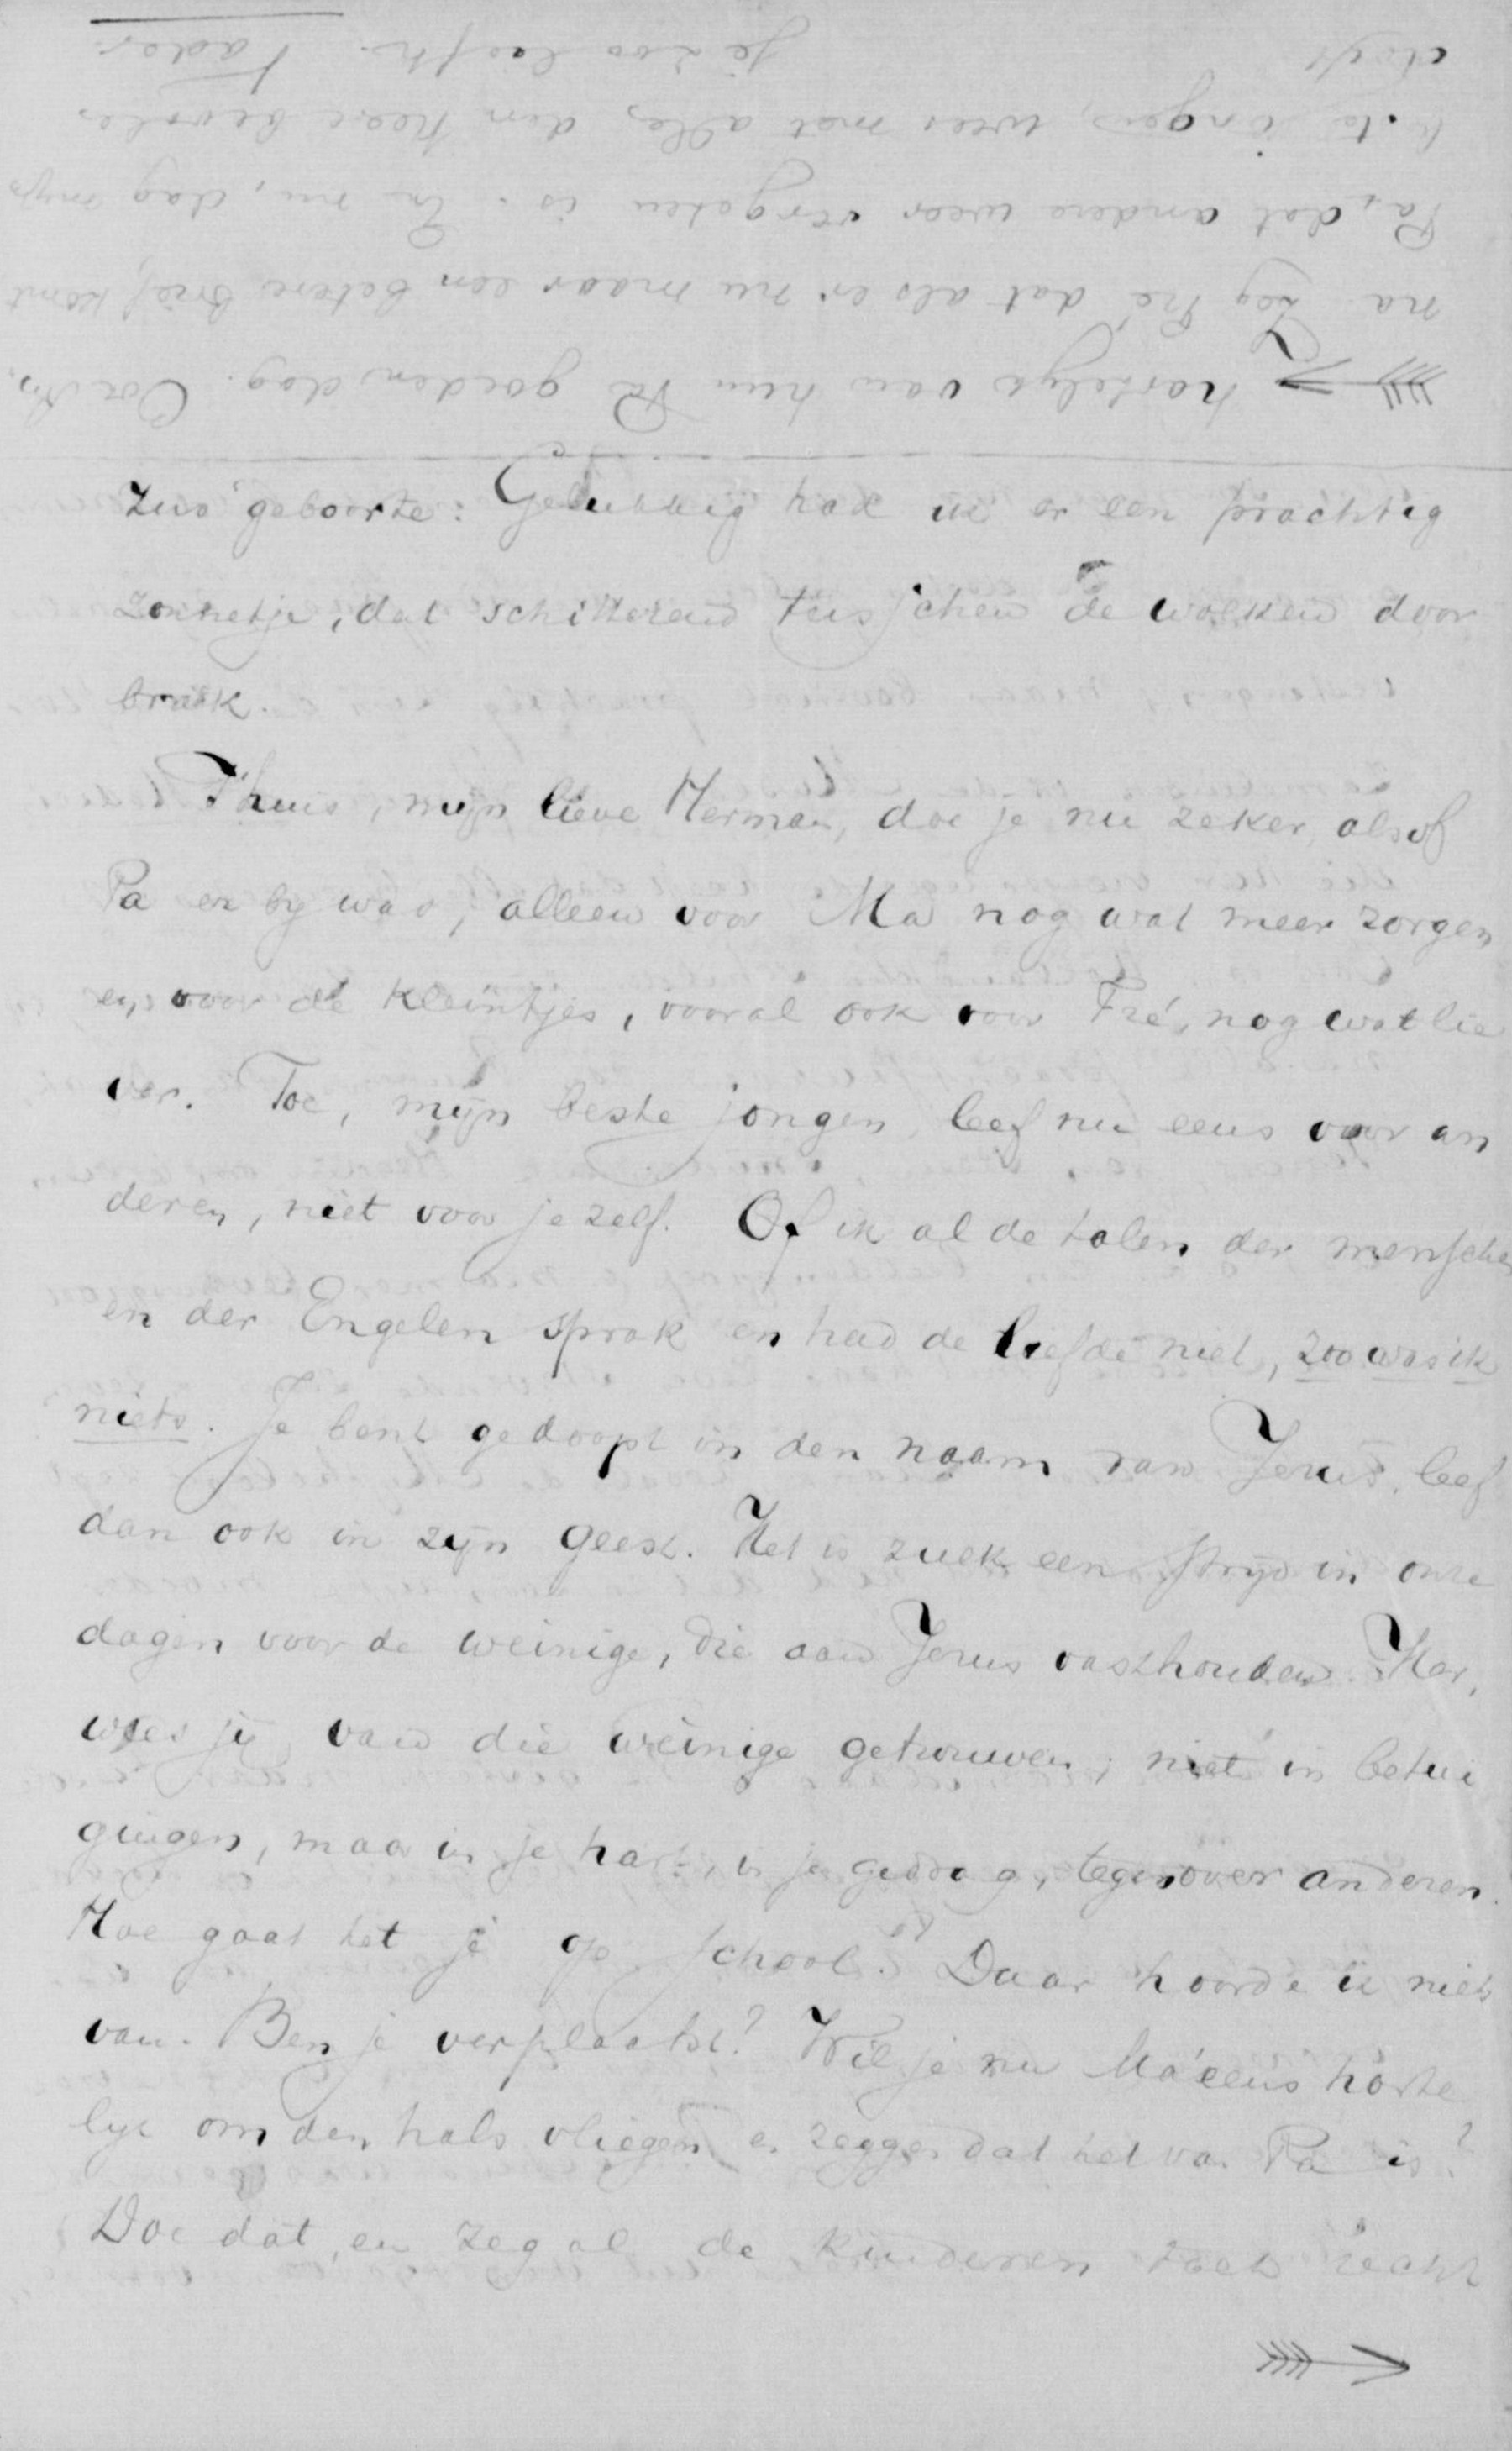 Zus' geboorte: Gelukkig had ik er een prachtig
zonnetje, dat schitterend tusschen de wolken door
brak.
Thuis, mijn lieve Herman, doe je nu zeker, alsof
Pa er by was, alleen voor Ma nog wat meer zorgen
en voor de kleintjes, vooral ook voor Fré, nog wat lie
ver. Toe, mijn beste jongen, leef nu eens voor an
deren, niet voor je zelf. Of ik al de talen der menschen
en der Engelen sprak en had de liefde niet, zoo was ik
niets. Je bent gedoopt in den naam van Jezus, leef
dan ook in zijn geest. Het is zulk een strijd in onze
dagen voor de weinige, die aan Jezus vasthouden. Her,
wees jij van die weinige getrouwen, niet in betui
gingen, maar in je hart, in je gedrag, tegenover anderen.
Hoe gaat het je op school? Daar hoorde ik niets
van. Ben je verplaatst? Wil je nu Ma eens harte
lijk om den hals vliegen en zeggen dat het van Pa is?
Doe dat, en zeg al de kinderen toch recht
hartelijk van hun Pa goeden dag. Oor Am.
na. Zeg Fré dat als er nu maar een betere brief komt
Pa, dat andere weer vergeten is. En nu, dag mijn
beste jongen, wees met alles den Heere bevolen.
dag!! Je zoo liefh. Vader.